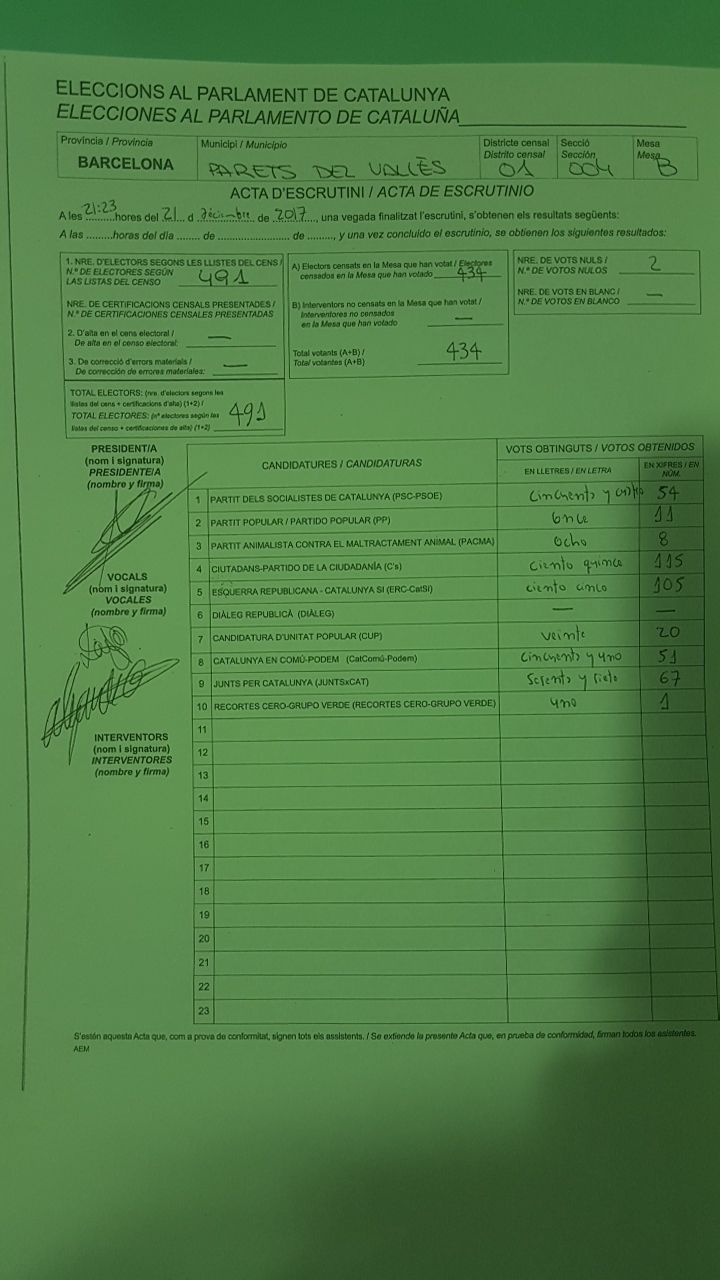 ELECCIONS AL PARLAMENT DE CATALUNYA
ELECCIONES AL PARLAMENTO DE CATALUÑA
Província / Provincia
BARCELONA
Municipi / Municipio
PARETS DEL VALLÈS
Districte censal
Distrito censal
01
Secció
Sección
004
Mesa
Mesa
B
ACTA D'ESCRUTINI / ACTA DE ESCRUTINIO
A les 21:23 hores del 21 d diciembre de 2017, una vegada finalitzat l'escrutini, s'obtenen els resultats següents:
A las .........horas del día ....... de ........................ de ........, y una vez concluido el escrutinio, se obtienen los siguientes resultados:
1. NRE. D'ELECTORS SEGONS LES LLISTES DEL CENS /
N.º DE ELECTORES SEGÚN
LAS LISTAS DEL CENSO 491
NRE. DE CERTIFICACIONS CENSALS PRESENTADES /
N.º DE CERTIFICACIONES CENSALES PRESENTADAS
2. D'alta en el cens electoral /
De alta en el censo electoral: —
3. De correcció d'errors materials /
De corrección de errores materiales: —
TOTAL ELECTORS: (nre. d'electors segons les
llistes del cens + certificacions d'alta) (1+2) /
TOTAL ELECTORES: (nº electores según las
listas del censo + certificaciones de alta) (1+2) 491
A) Electors censats en la Mesa que han votat / Electores
censados en la Mesa que han votado 434
B) Interventors no censats en la Mesa que han votat /
Interventores no censados
en la Mesa que han votado —
Total votants (A+B) /
Total votantes (A+B) 434
NRE. DE VOTS NULS /
N.º DE VOTOS NULOS 2
NRE. DE VOTS EN BLANC /
N.º DE VOTOS EN BLANCO —
PRESIDENT/A
(nom i signatura)
PRESIDENTE/A
(nombre y firma)
VOCALS
(nom i signatura)
VOCALES
(nombre y firma)
INTERVENTORS
(nom i signatura)
INTERVENTORES
(nombre y firma)
CANDIDATURES / CANDIDATURAS
VOTS OBTINGUTS / VOTOS OBTENIDOS
EN LLETRES / EN LETRA
EN XIFRES / EN NÚM.
1 PARTIT DELS SOCIALISTES DE CATALUNYA (PSC-PSOE) cincuenta y cuatro 54
2 PARTIT POPULAR / PARTIDO POPULAR (PP) once 11
3 PARTIT ANIMALISTA CONTRA EL MALTRACTAMENT ANIMAL (PACMA) ocho 8
4 CIUTADANS-PARTIDO DE LA CIUDADANÍA (C's) ciento quince 115
5 ESQUERRA REPUBLICANA - CATALUNYA SI (ERC-CatSI) ciento cinco 105
6 DIÀLEG REPUBLICÀ (DIÀLEG) — —
7 CANDIDATURA D'UNITAT POPULAR (CUP) veinte 20
8 CATALUNYA EN COMÚ-PODEM (CatComú-Podem) cincuenta y uno 51
9 JUNTS PER CATALUNYA (JUNTSxCAT) sesenta y siete 67
10 RECORTES CERO-GRUPO VERDE (RECORTES CERO-GRUPO VERDE) uno 1
11
12
13
14
15
16
17
18
19
20
21
22
23
S'estén aquesta Acta que, com a prova de conformitat, signen tots els assistents. / Se extiende la presente Acta que, en prueba de conformidad, firman todos los asistentes.
AEM